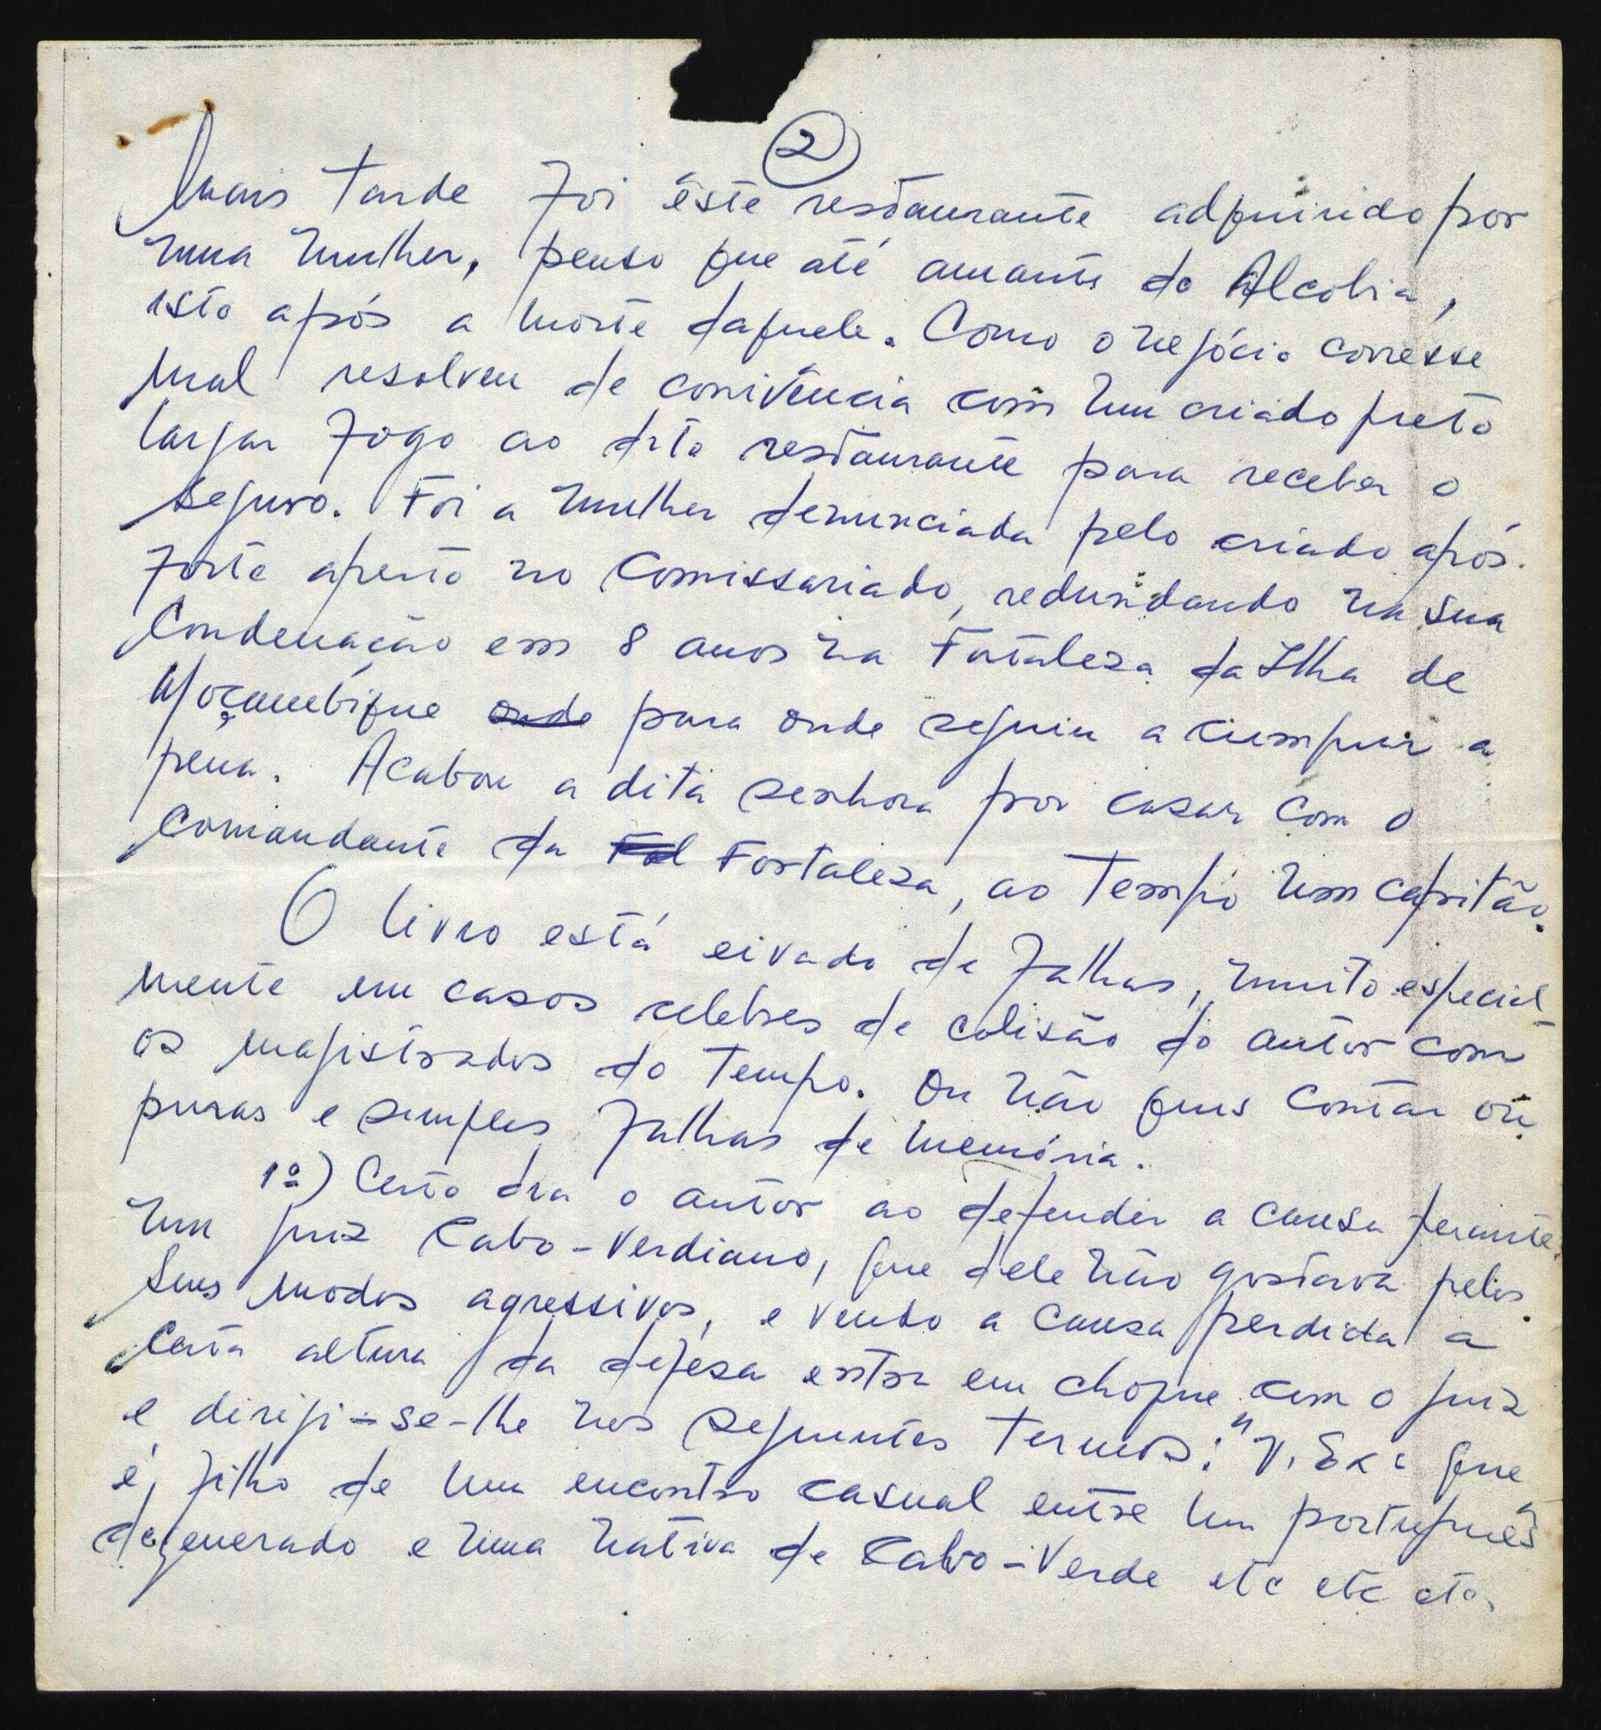 2
Mais tarde foi êste restaurante adquirido por
uma mulher, penso que até amante do Alcobia,
isto após a morte daquele. Como o negócio corresse
mal resolveu de conivência com um criado preto
largar fogo ao dito restaurante para receber o
seguro. Foi a mulher denunciada pelo criado após
forte aperto no Comissariado, redundando na sua
Condenação em 8 anos na Fortaleza da Ilha de
Moçambique onde para onde seguiu a cumprir a
pena. Acabou a dita senhora por casar com o
Comandante da Fal Fortaleza, ao tempo um capitão.
O livro está eivado de falhas, muito especial
mente em casos celebres de colisão do autor com
os magistrados do tempo. Ou não quis contar ou
puras e simples falhas de memória.
1º) Certo dia o autor ao defender a causa perante
um juiz Cabo-Verdiano, que dele não gostava pelos
seus modos agressivos, e vendo a causa perdida a
certa altura da defesa entra em choque com o juiz
e dirigi-se-lhe nos seguintes termos: "V. Exª que
é, filho de um encontro casual entre um português
degenerado e uma nativa de Cabo-Verde etc etc etc.